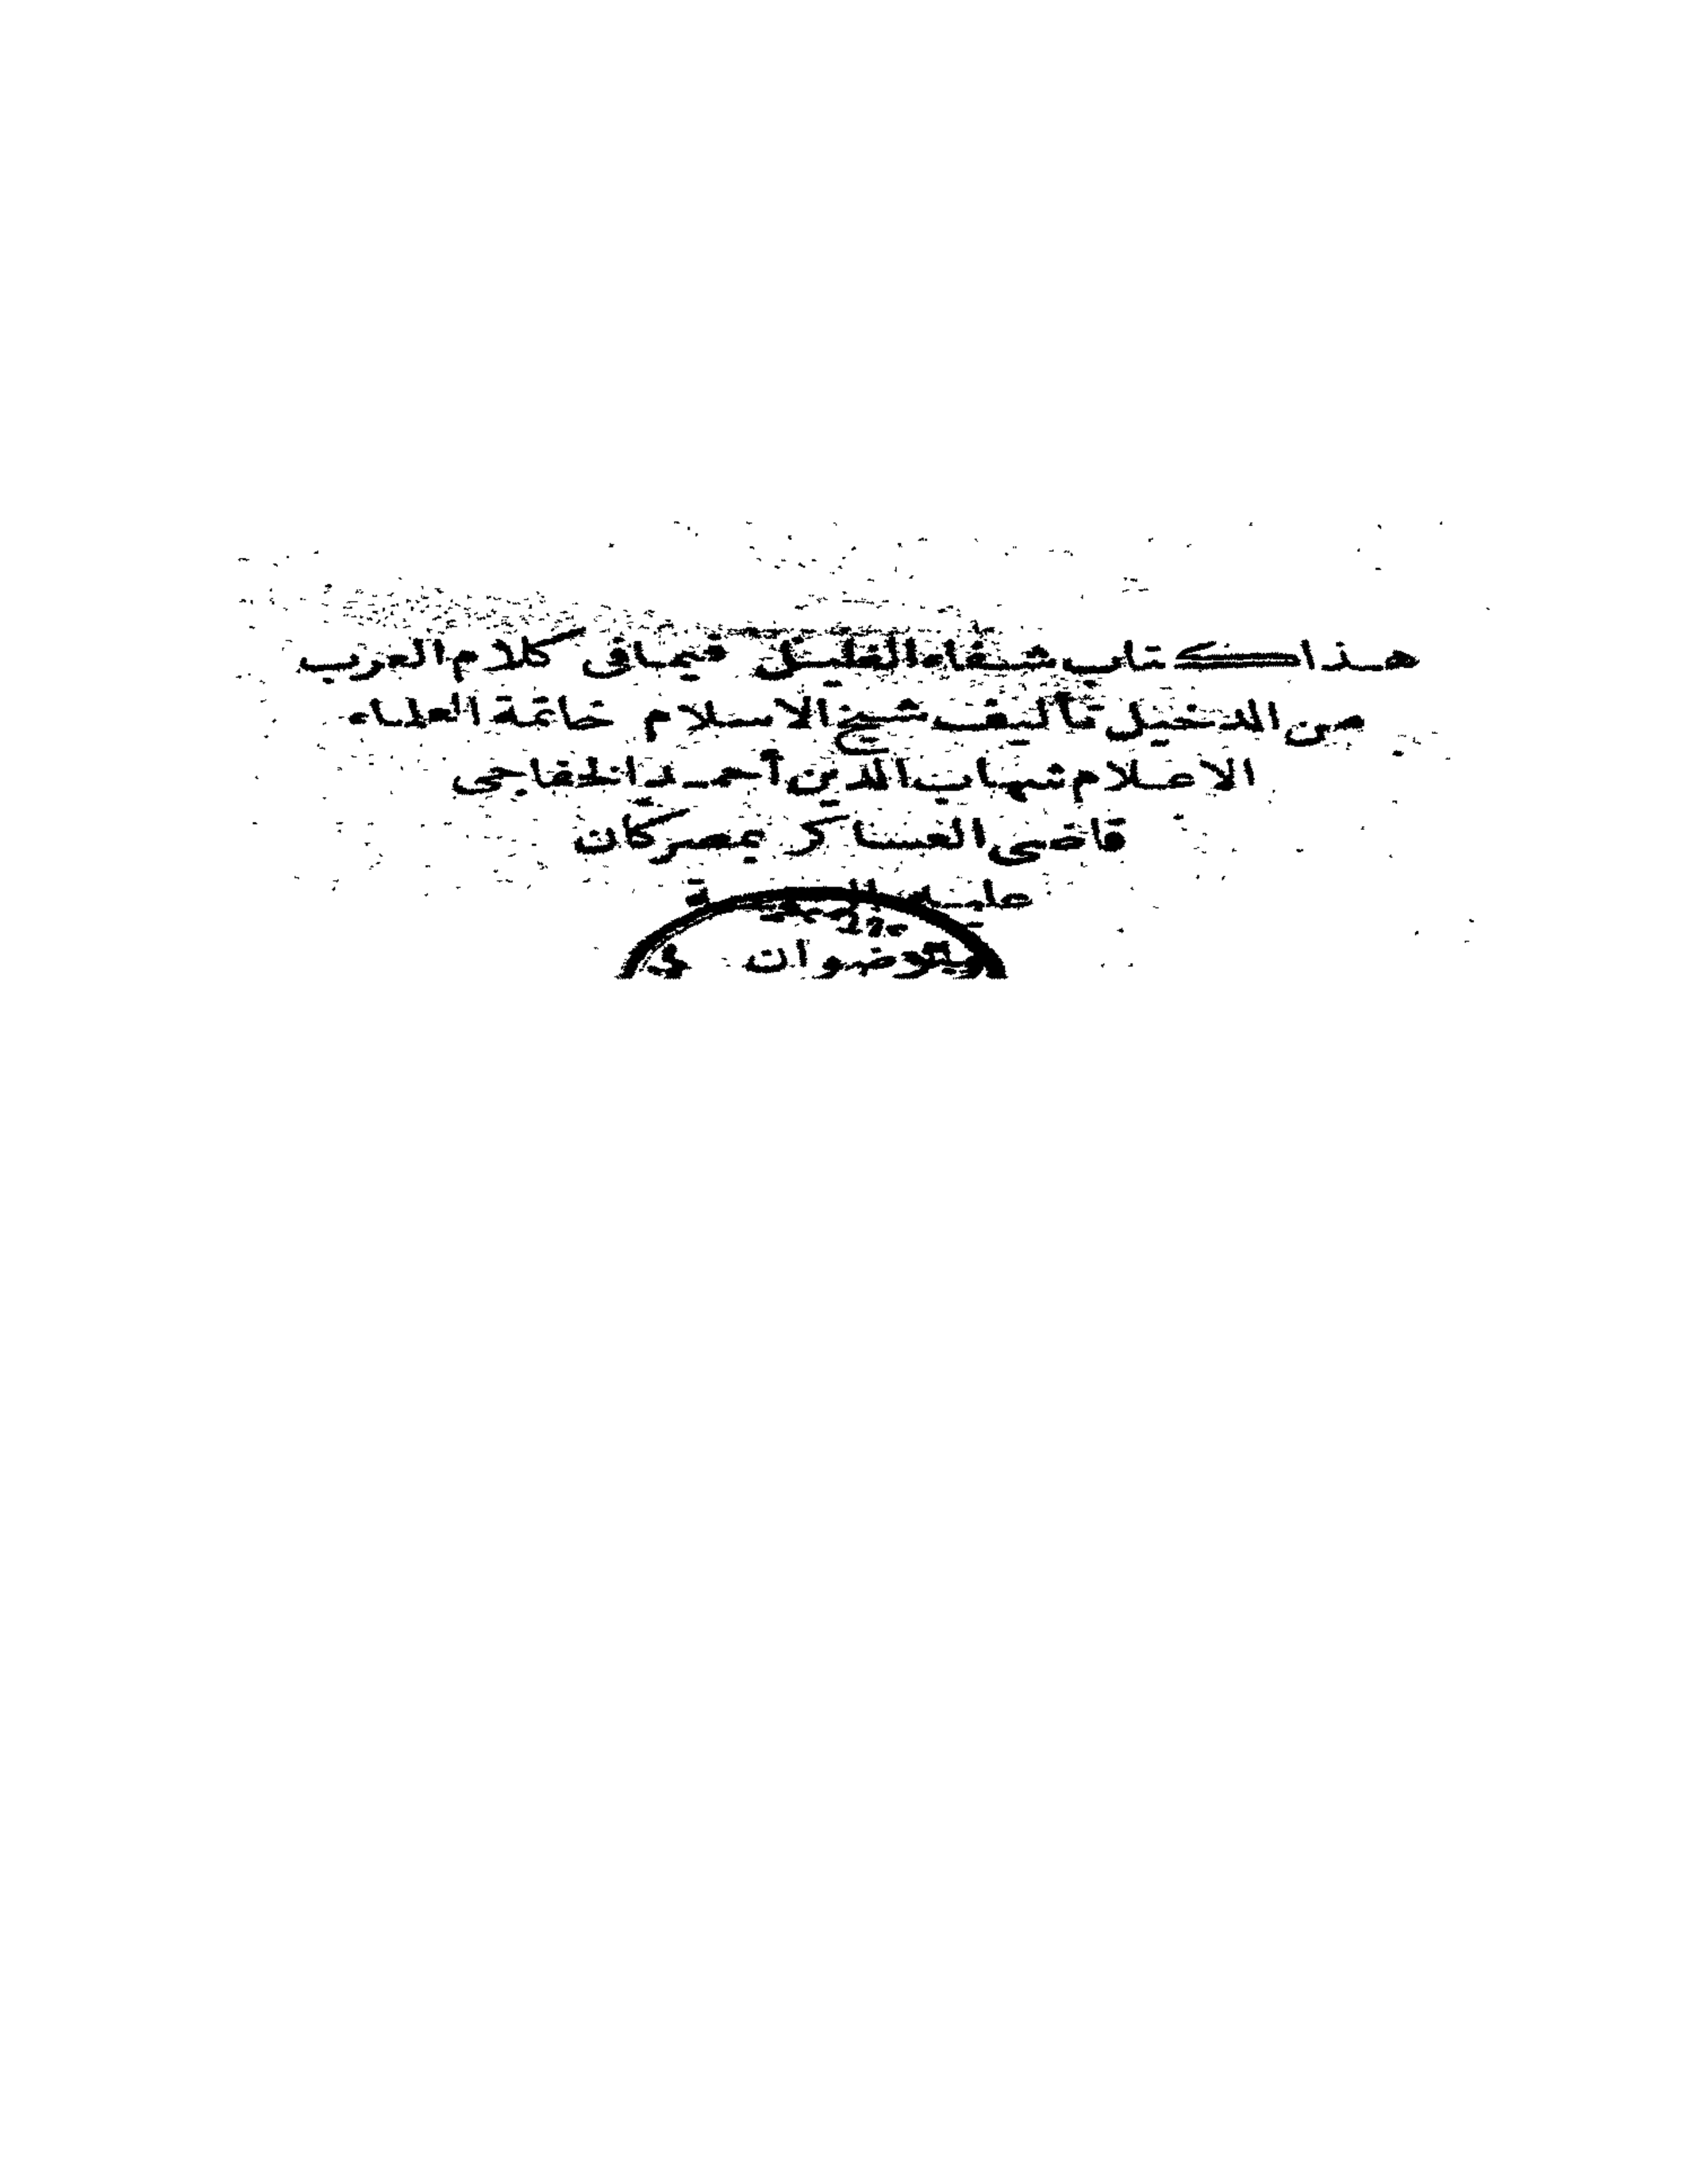 هذا كتاب شفاء الغليل فيما في كلام العرب
من الدخيل تأليف شيخ الاسلام خاتمة العلماء
الاعلام شهاب الدين أحمد الخفاجى
قاضى العساكر بمصر كان
عليه الرحمة
والرضوان